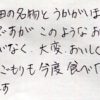 田の名物とうかがいま
ですが このような お
がなく、大変 おいしく
ごもりも 今度 食べた
す